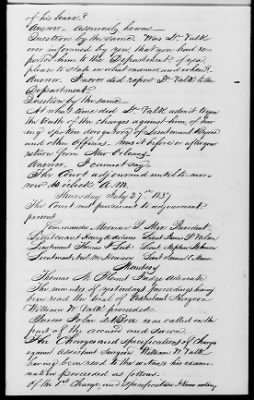 of his leave?
Answer. Assuredly
Question by the same. Was Dr. Valk
ever informed by you, that you had re-
ported him to the Department? if yea
please to state in what manner, and when?
Answer. I never did report Dr Valk to the
Department?
Question by the same
At what time did Dr. Valk admit to you
the truth of the charges against him, of hav-
ing spoken derogatory of Lieutenant
and other Officers. Was it before or after your
return from New Orleans
Answer. I cannot say
The Court adjourned until to mor-
row 10 o'clock A.M.
Thursday July 27th 1837.
The Court met pursuant to adjournment
present
Commodore President
Lieutenant Lieut
Lieutenant Thomas Lieut Stephen Johnson
Lieutenant Lieut Samuel
Members
Thomas Blount Judge Advocate
The minutes of yesterdays proceedings having
been read the trial of Assistant Surgeon
William W Valk proceeded.
was called on the
part of the accused and sworn
The Charges and specifications of Charges
against Assistant Surgeon William W Valk
having been read to the witness his exami-
nation proceeded as follows.
Of the 3rd Charge, and specification